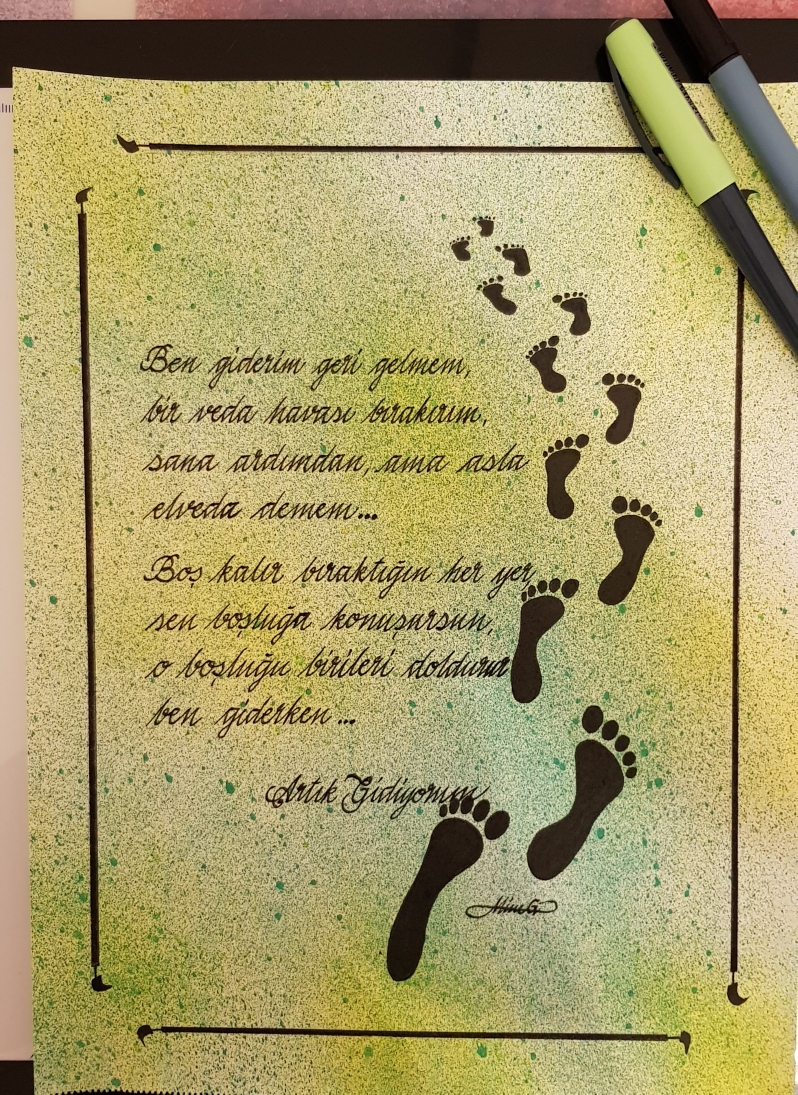 Ben giderim geri gelmem,
bir veda havası bırakırım,
sana ardımdan, ama asla
elveda demem...
Boş kalır bıraktığın her yer,
sen boşluğa konuşursun,
o boşluğu birileri doldurur
ben giderken...
Artık Gidiyorum
Mine G.